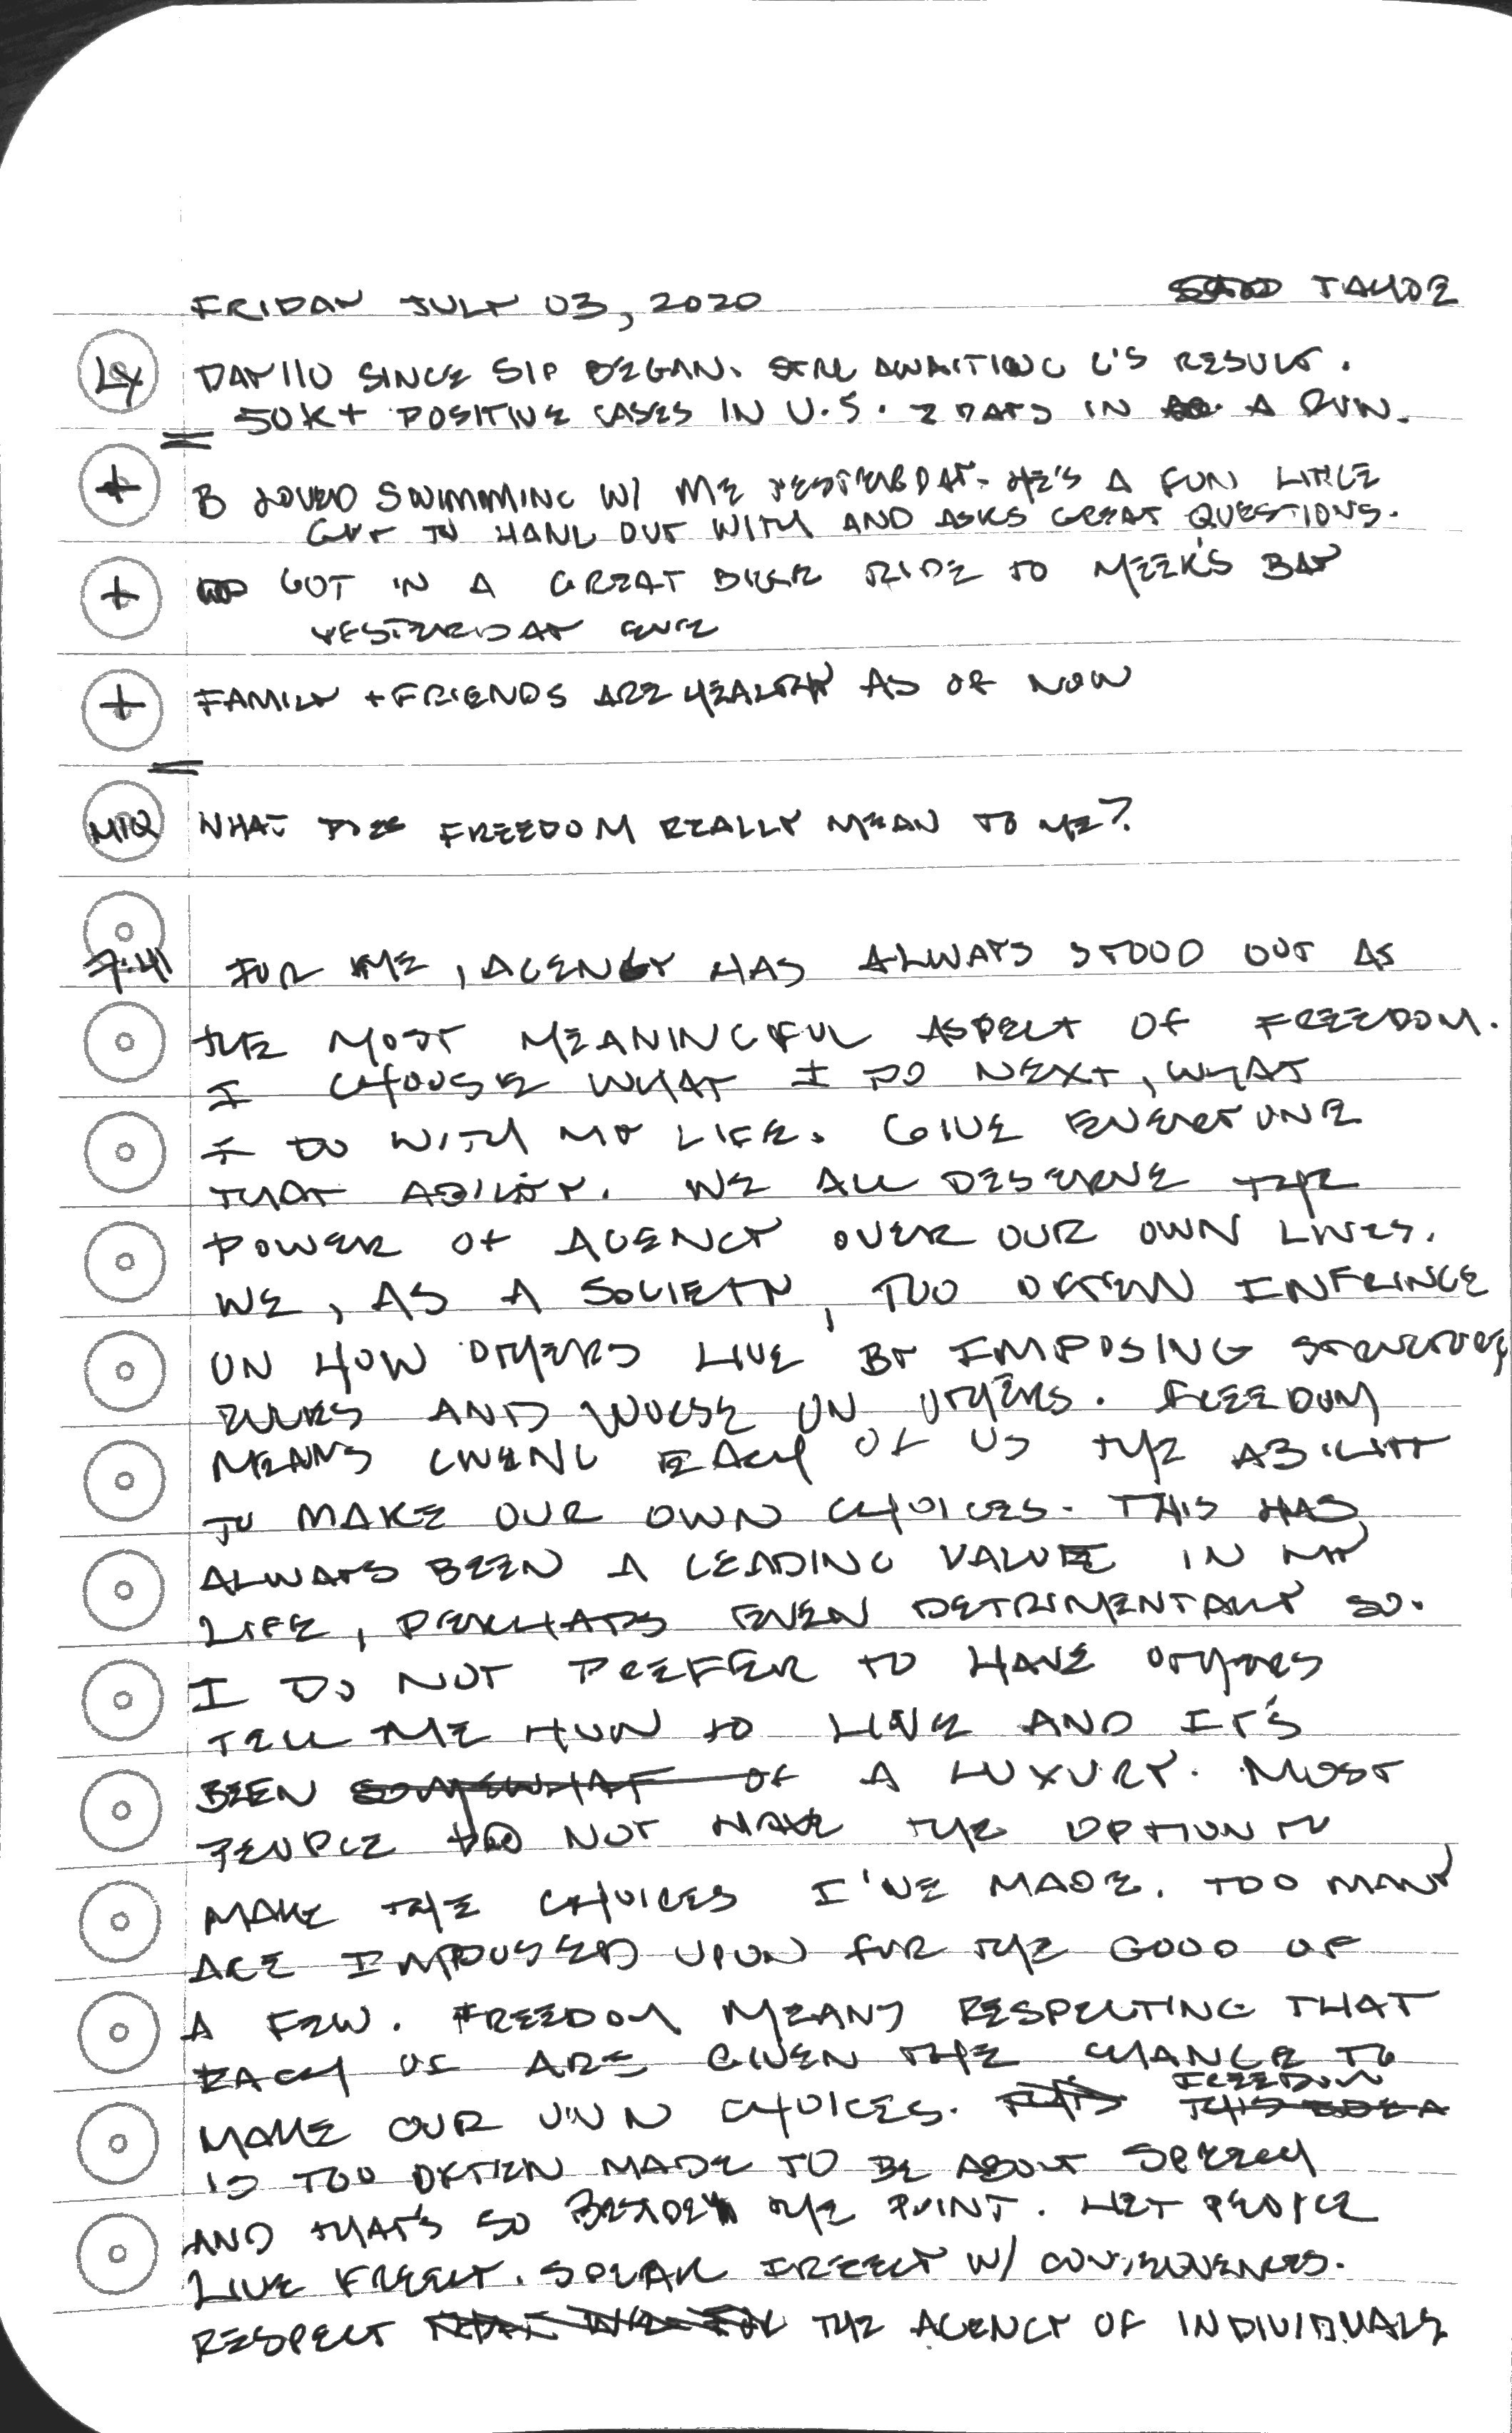 FRIDAY JULY 03, 2020 TAHOE
LX DAY 110 SINCE SIP BEGAN. STILL AWAITING C'S RESULT.
50K+ POSITIVE CASES IN U.S. 2 DAYS IN A RUN.
+ B LOVED SWIMMING W/ ME YESTERDAY. HE'S A FUN LITTLE
GUY TO HANG OUT WITH AND ASKS GREAT QUESTIONS.
+ GOT IN A GREAT BIKE RIDE TO MEEK'S BAY
YESTERDAY EVE
+ FAMILY + FRIENDS ARE HEALTHY AS OF NOW
MIQ WHAT DOES FREEDOM REALLY MEAN TO ME?
7:41 FOR ME, AGENCY HAS ALWAYS STOOD OUT AS
THE MOST MEANINGFUL ASPECT OF FREEDOM.
I CHOOSE WHAT I DO NEXT, WHAT
I DO WITH MY LIFE. GIVE EVERYONE
THAT ABILITY. WE ALL DESERVE THE
POWER OF AGENCY OVER OUR OWN LIVES.
WE, AS A SOCIETY, TOO OFTEN INFRINGE
ON HOW OTHERS LIVE BY IMPOSING
RULES AND WORSE ON OTHERS. FREEDOM
MEANS GIVING EACH OF US THE ABILITY
TO MAKE OUR OWN CHOICES. THIS HAS
ALWAYS BEEN A LEADING VALUE IN MY
LIFE, PERHAPS EVEN DETRIMENTALLY SO.
I DO NOT PREFER TO HAVE OTHERS
TELL ME HOW TO LIVE AND IT'S
BEEN SOMEWHAT OF A LUXURY. MOST
PEOPLE DO NOT HAVE THE OPTION TO
MAKE THE CHOICES I'VE MADE. TOO MANY
ARE IMPOSED UPON FOR THE GOOD OF
A FEW. FREEDOM MEANS RESPECTING THAT
EACH OF ARE GIVEN THE CHANCE TO
MAKE OUR OWN CHOICES. THIS THIS IDEA FREEDOM
IS TOO OFTEN MADE TO BE ABOUT SPEECH
AND THAT'S SO BESIDES THE POINT. LET PEOPLE
LIVE FREELY. SPEAK FREELY W/ CONSEQUENCES.
RESPECT THE AGENCY OF INDIVIDUALS